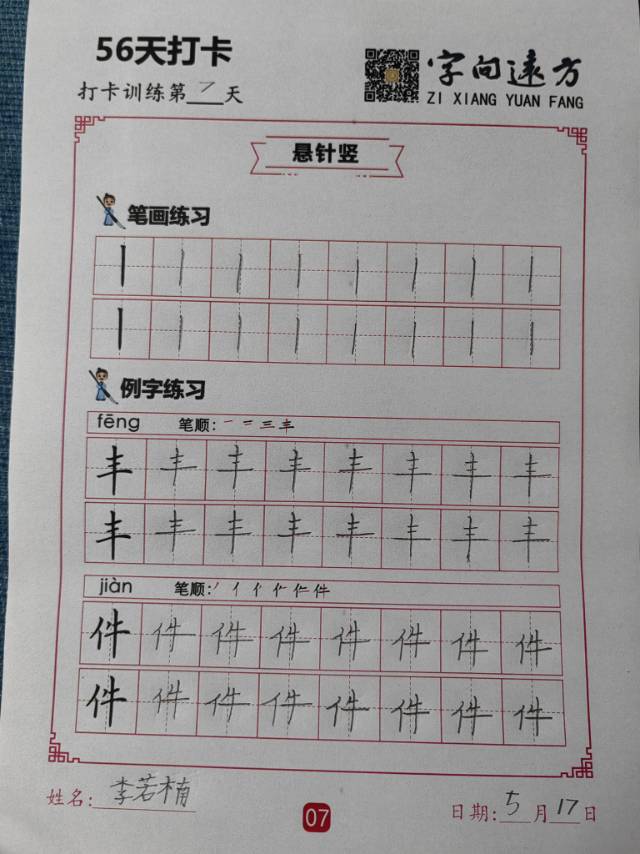 56天打卡
打卡训练第7天
字向远方
ZI XIANG YUAN FANG
悬针竖
笔画练习
丨 丨 丨 丨 丨 丨 丨 丨
丨 丨 丨 丨 丨 丨 丨 丨
例字练习
fēng 笔顺: 一 二 三 丰
丰 丰 丰 丰 丰 丰 丰 丰
丰 丰 丰 丰 丰 丰 丰 丰
jiàn 笔顺: 丿 亻 亻 仁 件
件 件 件 件 件 件 件 件
件 件 件 件 件 件 件 件
姓名: 李若楠
07
日期: 5月17日